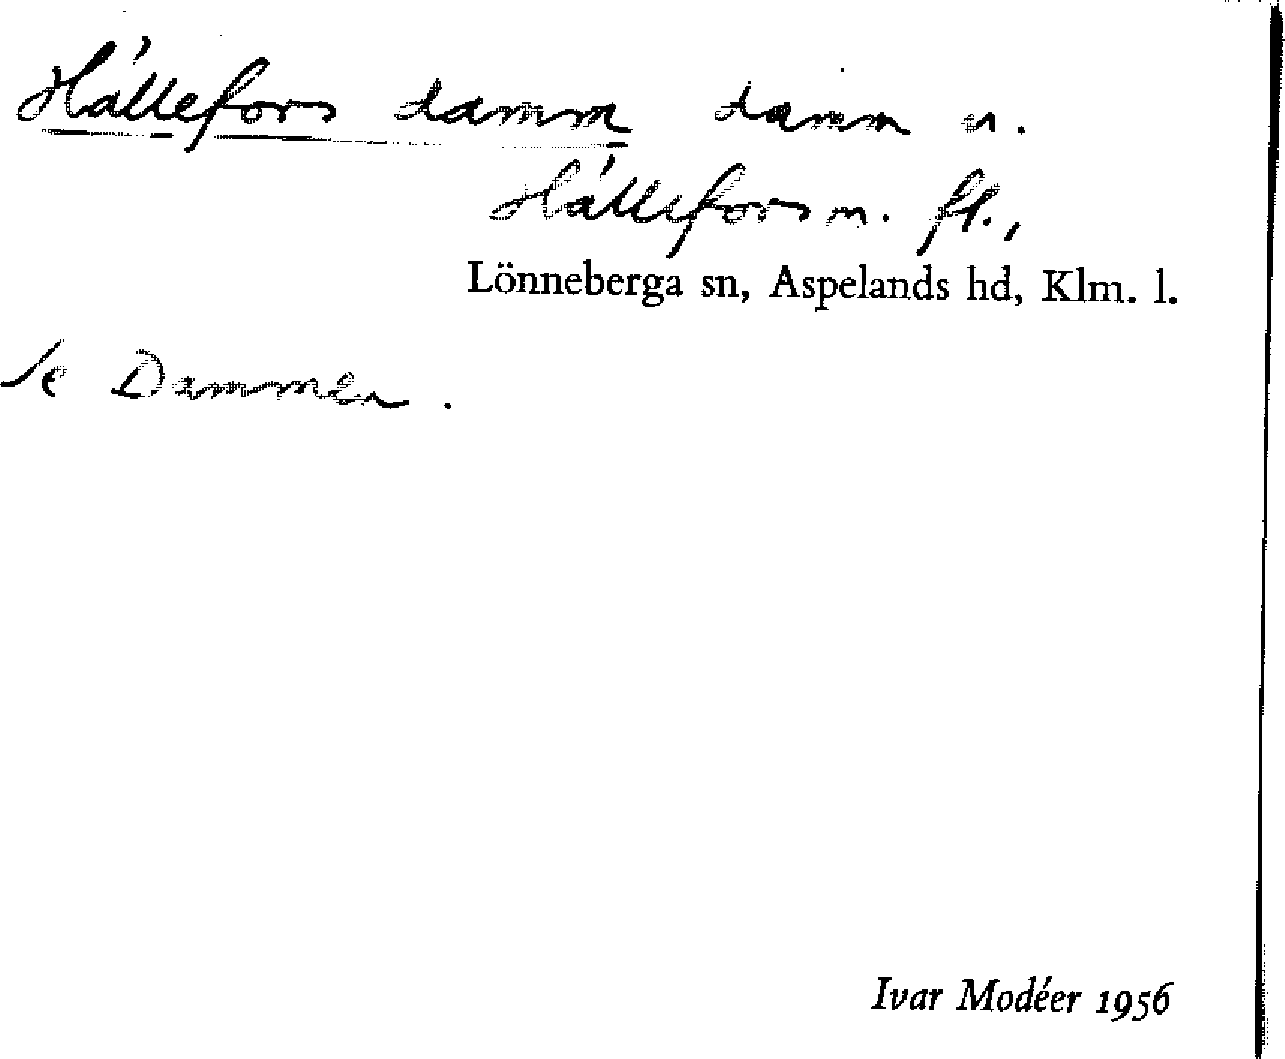 Hállefors damm damm u.
Hállefors m. fl.,
Lönneberga sn, Aspelands hd, Klm. l.
Se Dammen.
Ivar Modéer 1956